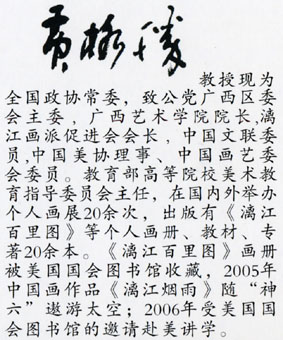 黄格胜
教授现为
全国政协常委，致公党广西区委
会主委，广西艺术学院院长，漓
江画派促进会会长，中国文联委
员，中国美协理事、中国画艺委
会委员。教育部高等院校美术教
育指导委员会主任，在国内外举办
个人画展20余次，出版有《漓江
百里图》等个人画册、教材、专
著20余本。《漓江百里图》画册
被美国国会图书馆收藏，2005年
中国画作品《漓江烟雨》随“神
六”遨游太空；2006年受美国国
会图书馆的邀请赴美讲学。